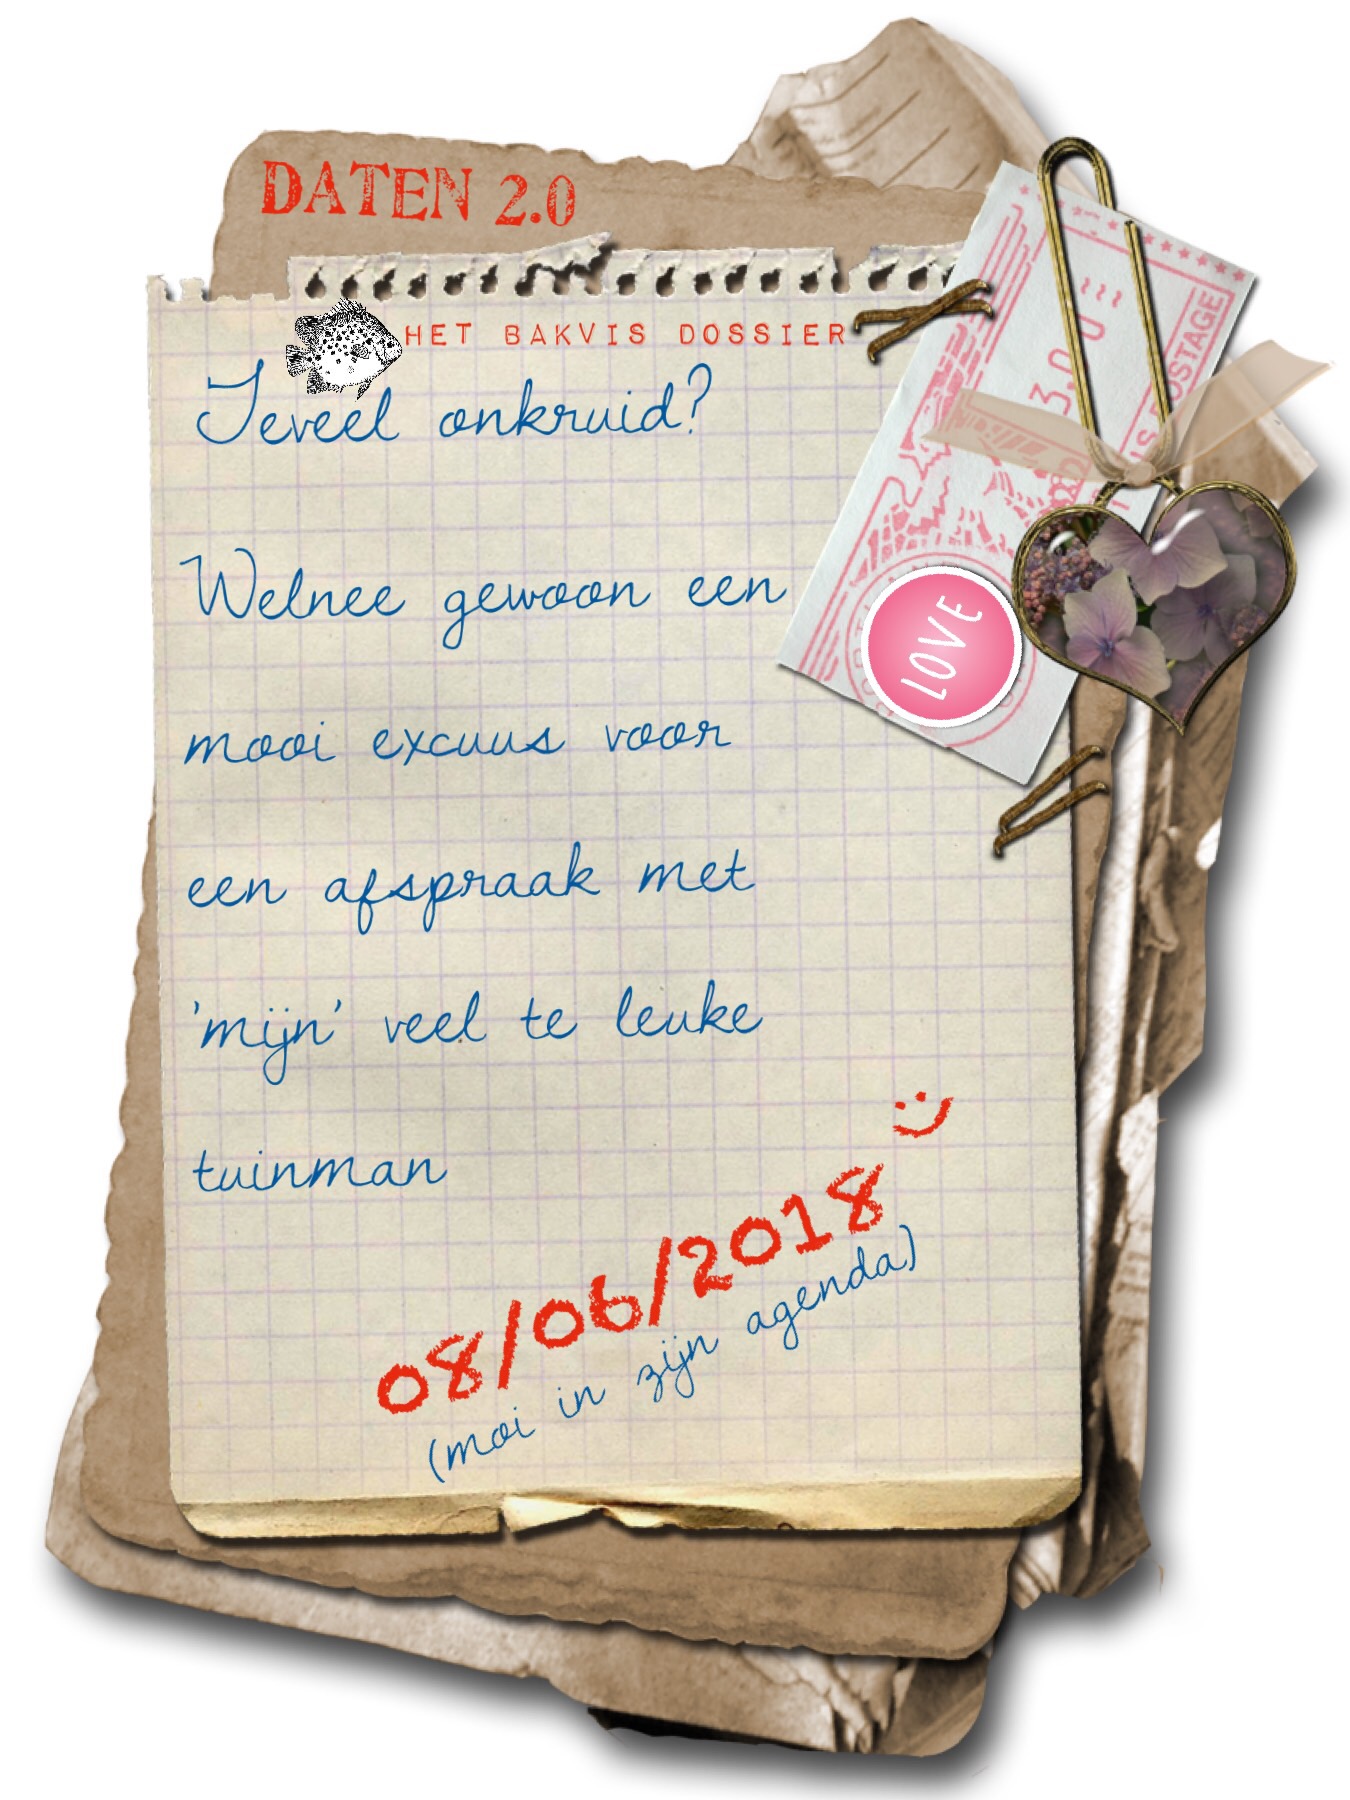 DATEN 2.0
HET BAKVIS DOSSIER
Teveel onkruid?
Welnee gewoon een
mooi excuus voor
een afspraak met
'mijn' veel te leuke
tuinman
:)
08/06/2018
(moi in zijn agenda)
3.00
POSTAGE
LOVE